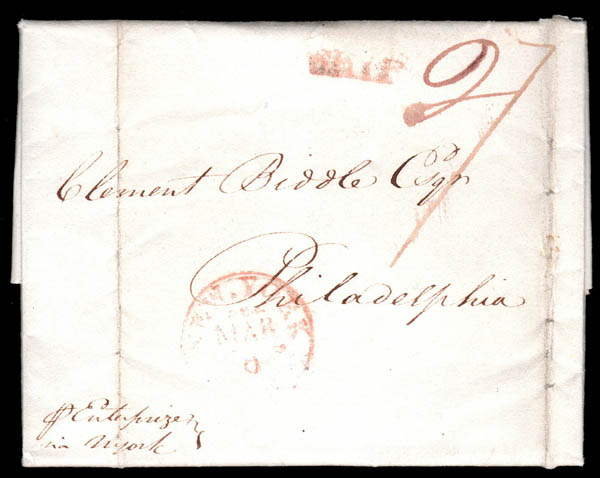 SHIP 27
Clement Biddle Esqr
Philadelphia
NEW-YORK
MAR
pr Enterprize
via NYork